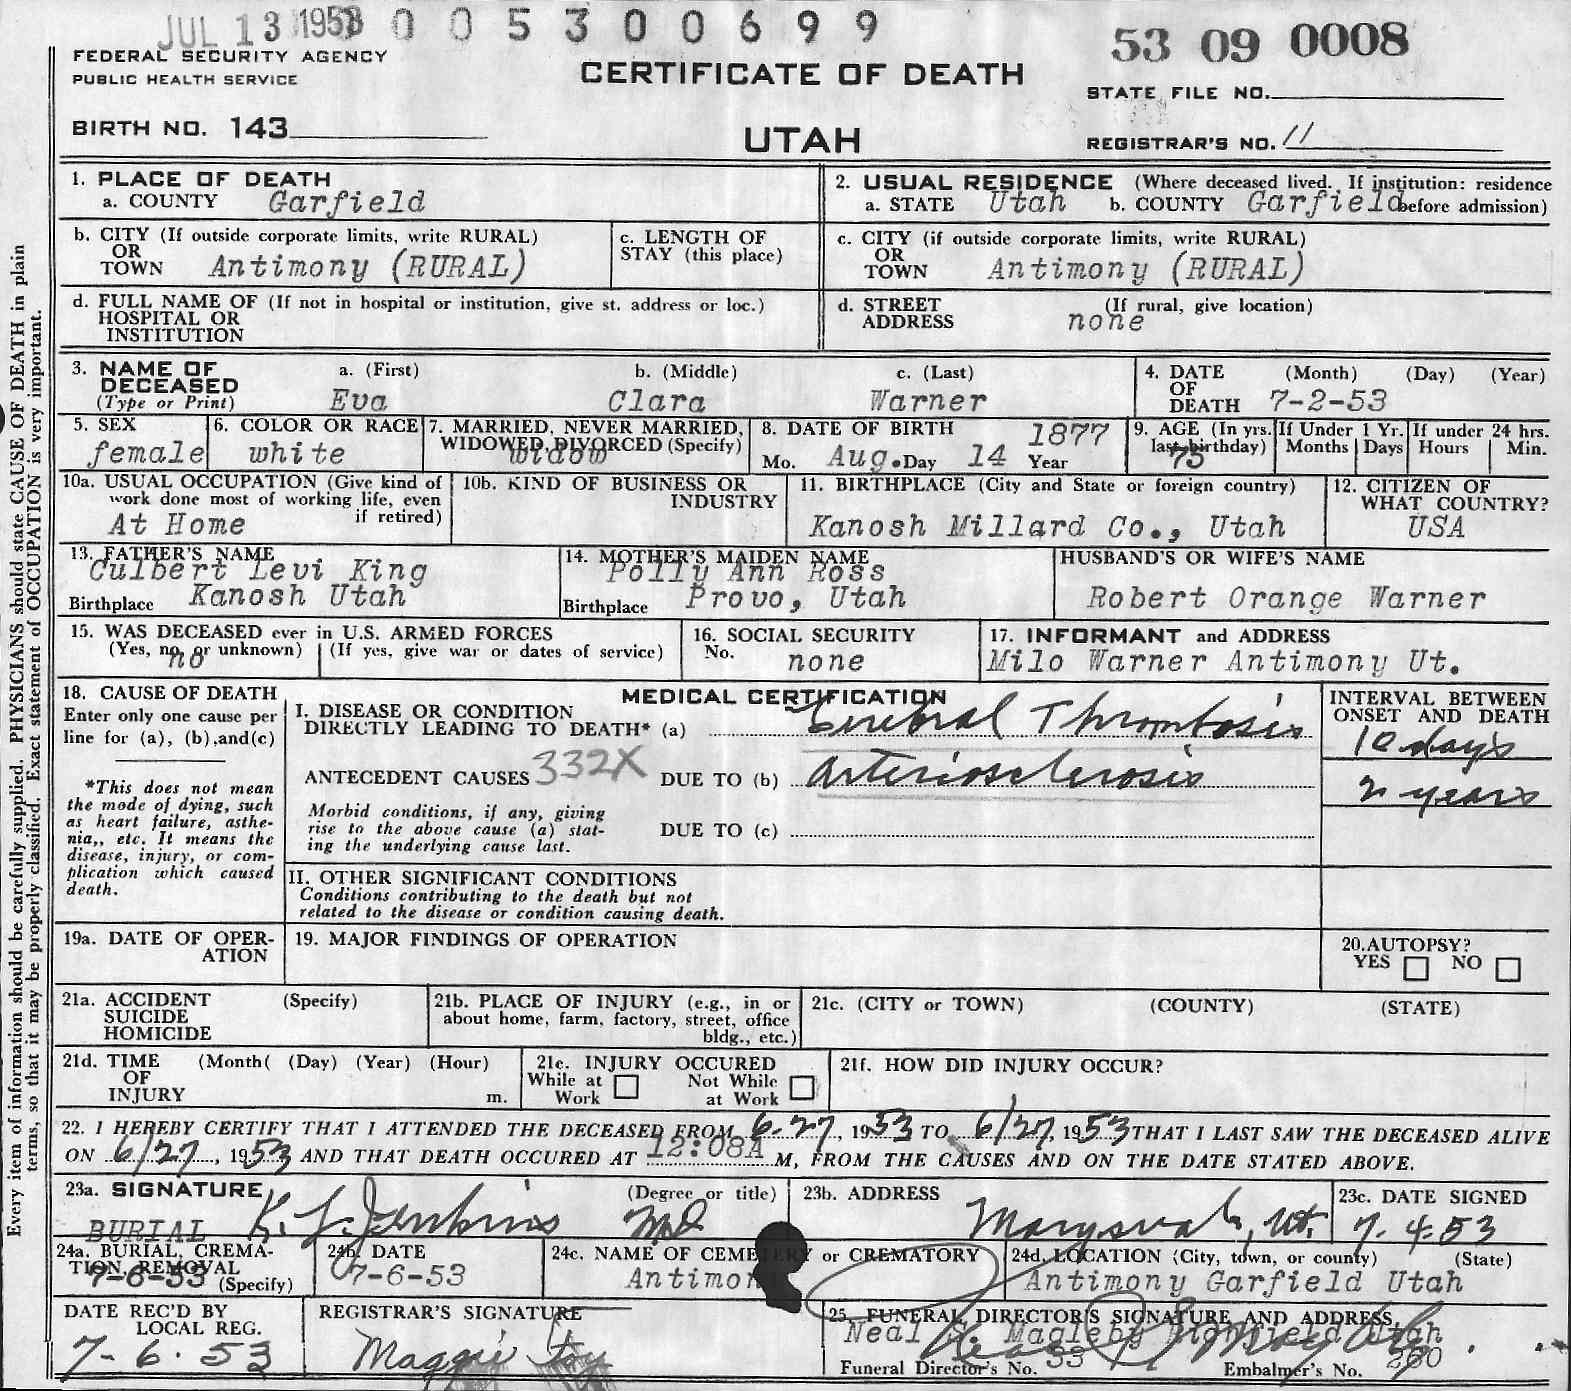 JUL 13 1953 0 0 5 3 0 0 6 9 9
53 09 0008
FEDERAL SECURITY AGENCY
PUBLIC HEALTH SERVICE
CERTIFICATE OF DEATH
STATE FILE NO.
BIRTH NO. 143
UTAH
REGISTRAR'S NO. 11
Every item of information should be carefully supplied. PHYSICIANS should state CAUSE OF DEATH in plain
terms, so that it may be properly classified. Exact statement of OCCUPATION is very important.
1. PLACE OF DEATH
a. COUNTY Garfield
2. USUAL RESIDENCE (Where deceased lived. If institution: residence
a. STATE Utah b. COUNTY Garfield before admission)
b. CITY (If outside corporate limits, write RURAL)
OR
TOWN Antimony (RURAL)
c. LENGTH OF
STAY (this place)
c. CITY (if outside corporate limits, write RURAL)
OR
TOWN Antimony (RURAL)
d. FULL NAME OF (If not in hospital or institution, give st. address or loc.)
HOSPITAL OR
INSTITUTION
d. STREET (If rural, give location)
ADDRESS none
3. NAME OF
DECEASED
(Type or Print)
a. (First) b. (Middle) c. (Last)
Eva Clara Warner
4. DATE (Month) (Day) (Year)
OF
DEATH 7-2-53
5. SEX
female
6. COLOR OR RACE
white
7. MARRIED, NEVER MARRIED,
WIDOWED, DIVORCED (Specify)
widow
8. DATE OF BIRTH 1877
Mo. Aug. Day 14 Year
9. AGE (In yrs.
last birthday)
75
If Under 1 Yr.
Months Days
If under 24 hrs.
Hours Min.
10a. USUAL OCCUPATION (Give kind of
work done most of working life, even
if retired)
At Home
10b. KIND OF BUSINESS OR
INDUSTRY
11. BIRTHPLACE (City and State or foreign country)
Kanosh Millard Co., Utah
12. CITIZEN OF
WHAT COUNTRY?
USA
13. FATHER'S NAME
Culbert Levi King
Birthplace Kanosh Utah
14. MOTHER'S MAIDEN NAME
Polly Ann Ross
Birthplace Provo, Utah
HUSBAND'S OR WIFE'S NAME
Robert Orange Warner
15. WAS DECEASED ever in U.S. ARMED FORCES
(Yes, no, or unknown) (If yes, give war or dates of service)
no
16. SOCIAL SECURITY
No. none
17. INFORMANT and ADDRESS
Milo Warner Antimony Ut.
18. CAUSE OF DEATH
Enter only one cause per
line for (a), (b),and(c)
*This does not mean
the mode of dying, such
as heart failure, asthe-
nia,, etc. It means the
disease, injury, or com-
plication which caused
death.
MEDICAL CERTIFICATION
I. DISEASE OR CONDITION
DIRECTLY LEADING TO DEATH* (a) Cerebral Thrombosis
ANTECEDENT CAUSES 332X DUE TO (b) Arteriosclerosis
Morbid conditions, if any, giving
rise to the above cause (a) stat-
ing the underlying cause last.
DUE TO (c)
INTERVAL BETWEEN
ONSET AND DEATH
10 days
2 years
II. OTHER SIGNIFICANT CONDITIONS
Conditions contributing to the death but not
related to the disease or condition causing death.
19a. DATE OF OPER-
ATION
19. MAJOR FINDINGS OF OPERATION
20.AUTOPSY?
YES NO
21a. ACCIDENT (Specify)
SUICIDE
HOMICIDE
21b. PLACE OF INJURY (e.g., in or
about home, farm, factory, street, office
bldg., etc.)
21c. (CITY or TOWN) (COUNTY) (STATE)
21d. TIME (Month( (Day) (Year) (Hour)
OF
INJURY m.
21e. INJURY OCCURED
While at Work Not While at Work
21f. HOW DID INJURY OCCUR?
22. I HEREBY CERTIFY THAT I ATTENDED THE DECEASED FROM 6-27, 1953 TO 6/27, 1953 THAT I LAST SAW THE DECEASED ALIVE
ON 6/27, 1953 AND THAT DEATH OCCURED AT 12:08A M, FROM THE CAUSES AND ON THE DATE STATED ABOVE.
23a. SIGNATURE (Degree or title)
K. L. Jenkins MD
23b. ADDRESS
Marysvale, Ut.
23c. DATE SIGNED
7-4-53
BURIAL
24a. BURIAL, CREMA-
TION, REMOVAL
(Specify)
7-6-53
24b. DATE
7-6-53
24c. NAME OF CEMETERY or CREMATORY
Antimon
24d. LOCATION (City, town, or county) (State)
Antimony Garfield Utah
DATE REC'D BY
LOCAL REG.
7-6-53
REGISTRAR'S SIGNATURE
Maggie
25. FUNERAL DIRECTOR'S SIGNATURE AND ADDRESS
Neal S. Magleby Richfield Utah
Funeral Director's No. 33 Embalmer's No. 260